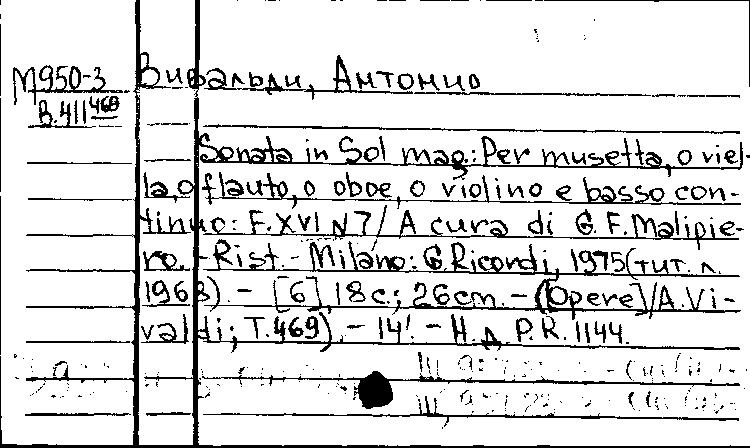 М950-3 Вивальди, Антонио
В.411 469
Sonata in Sol mag.: Per musetta, o viel-
la, o flauto, o oboe, o violino e basso con-
tinuo: F. XVI N 7 / A cura di G. F. Malipie-
ro. - Rist. - Milano: G. Ricordi, 1975 (тит. л.
1968). - [6], 18 с.; 26 cm. - (Opere / A. Vi-
valdi; T. 469). - 14'. - Н. д. P. R. 1144.